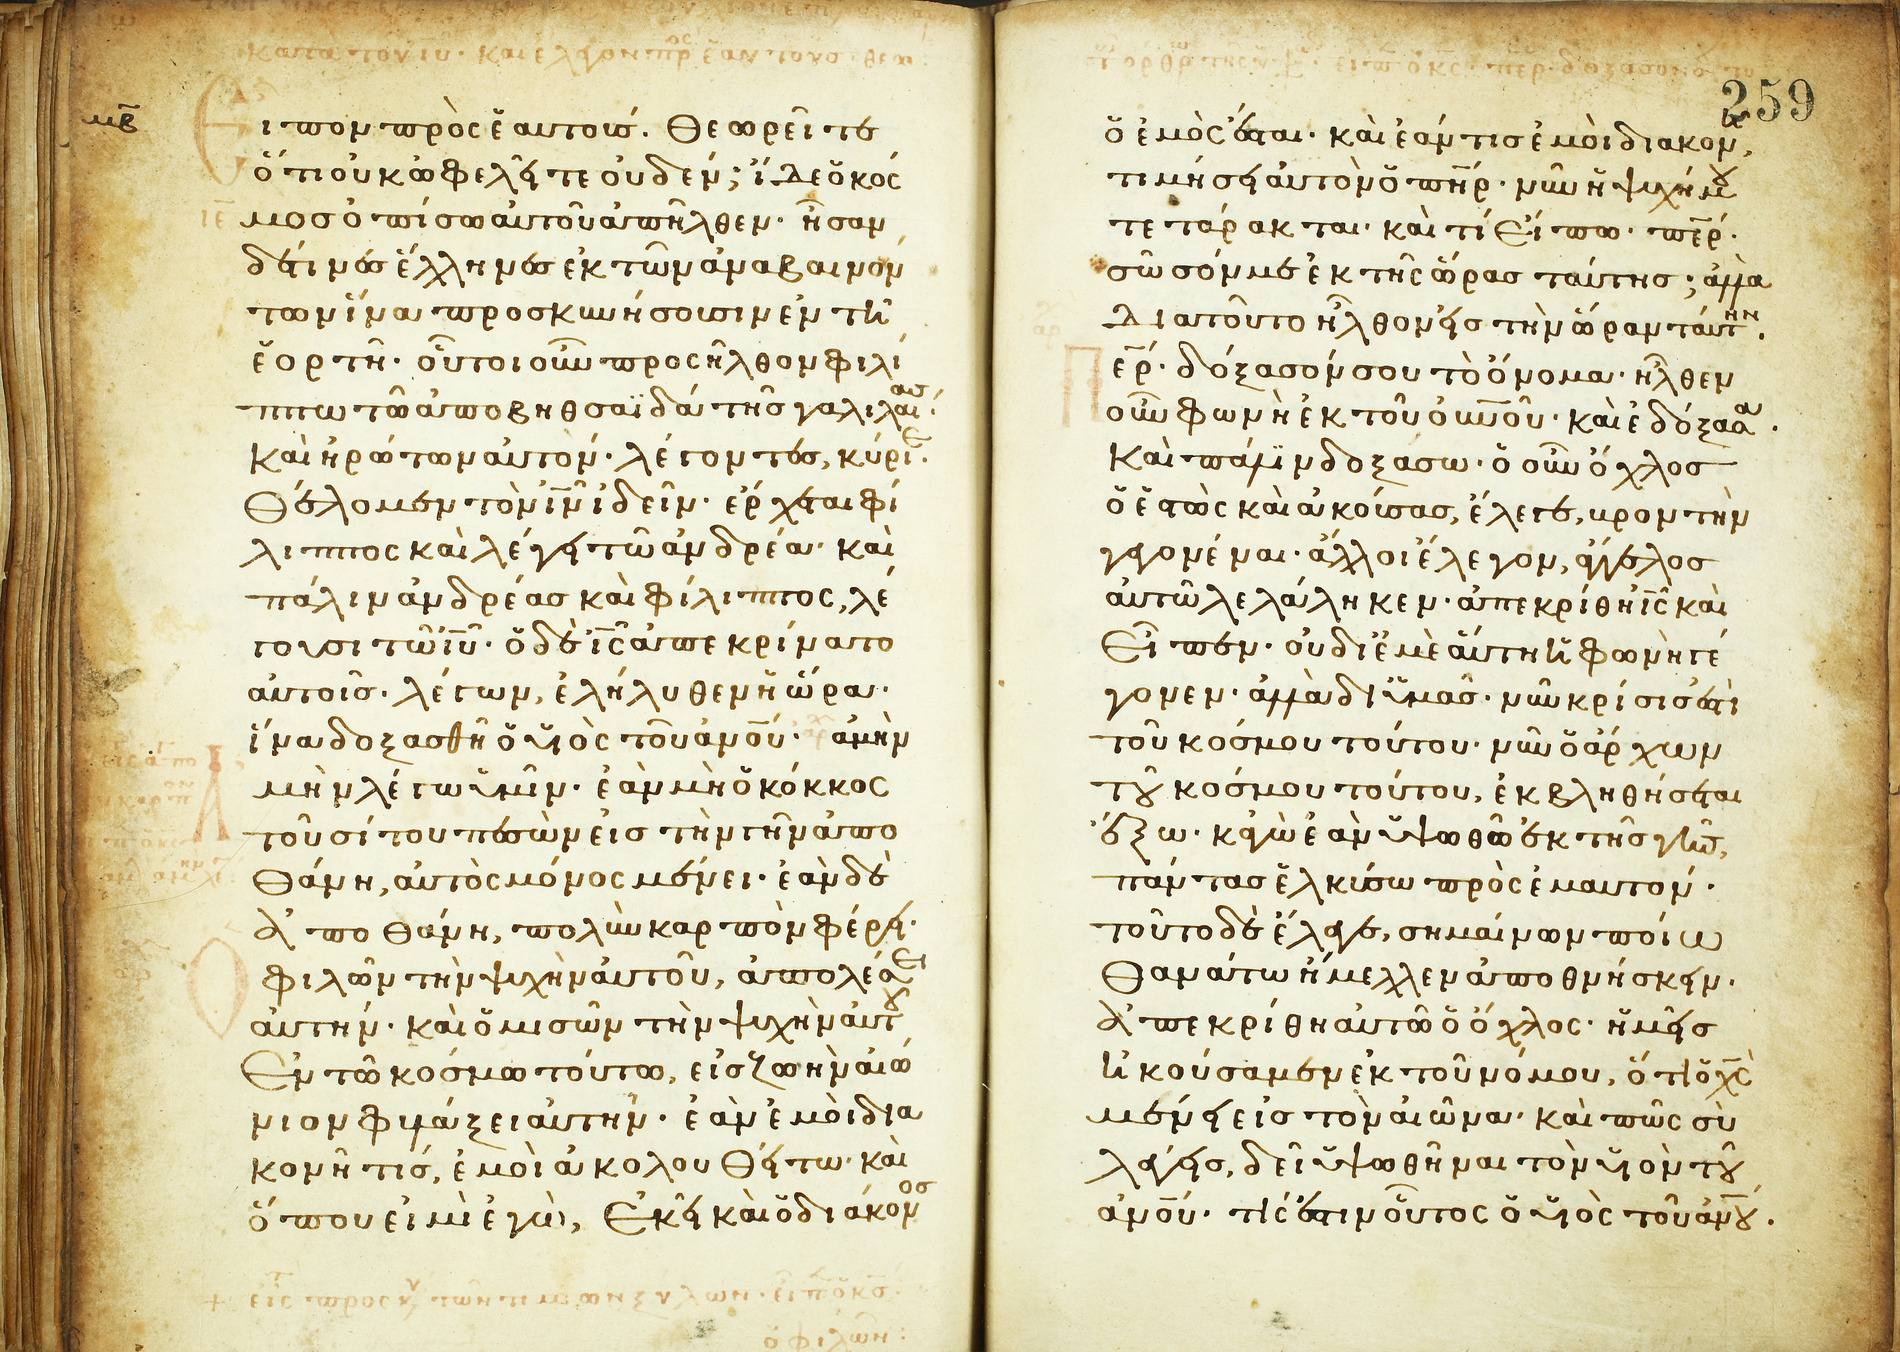 κατὰ τὸν ιυ· καὶ ἔλεγον πρ ἑαυτούς· θεω:
μβ
Εἶπον πρὸς ἑαυτούς· Θεωρεῖτε
ὅτι οὐκ ὠφελεῖτε οὐδέν; ἴδε ὁ κόσ
ιε μος ὀπίσω αὐτοῦ ἀπῆλθεν· ἦσαν
δέ τινες ἕλληνες ἐκ τῶν ἀναβαινόν
των ἵνα προσκυνήσουσιν ἐν τῆ
ἑορτῆ· οὗτοι οὖν προσῆλθον φιλί
ππω τῶ ἀπὸ βηθσαϊδὰ τῆς γαλιλαίας·
καὶ ἠρώτων αὐτὸν· λέγοντες, κύριε·
Θέλομεν τὸν ιν ἰδεῖν· ἔρχεται φί
λιππος καὶ λέγει τῶ ἀνδρέα· καὶ
πάλιν ἀνδρέας καὶ φίλιππος, λέ
γουσι τῶ ιυ· ὁ δὲ ις ἀπεκρίνατο
αὐτοῖς· λέγων, ἐλήλυθεν ἡ ὥρα·
ἵνα δοξασθῆ ὁ υἱὸς τοῦ ανου· ἀμὴν
μὴν λέγω ὑμῖν· ἐὰν μὴ ὁ κόκκος
τοῦ σίτου πεσὼν εἰς τὴν γῆν ἀπο
θάνη, αὐτὸς μόνος μένει· ἐὰν δὲ
ἀποθάνη, πολὺν καρπὸν φέρει·
Ὁ φιλῶν τὴν ψυχὴν αὐτοῦ, ἀπολέσει
αὐτήν· καὶ ὁ μισῶν τὴν ψυχὴν αὐτοῦ
Ἐν τῶ κόσμω τούτω, εἰς ζωὴν αἰώ
νιον φυλάξει αὐτήν· ἐὰν ἐμοὶ δια
κονῆ τις, ἐμοὶ ἀκολουθείτω· καὶ
ὅπου εἰμὶ ἐγὼ, Ἐκεῖ καὶ ὁ διάκονος
ὁ φιλῶν:
259
ὁ ἐμὸς ἔσται· καὶ ἐάν τις ἐμοὶ διακονῆ,
τιμήσει αὐτὸν ὁ πηρ· νῦν ἡ ψυχή μου
τετάρακται· καὶ τί Εἴπω· περ·
σῶσόν με ἐκ τῆς ὥρας ταύτης; ἀλλὰ
Διατοῦτο ἦλθον εἰς τὴν ὥραν ταύτην.
Περ· δόξασόν σου τὸ ὄνομα· ἦλθεν
οὖν φωνὴ ἐκ τοῦ ουνου· καὶ ἐδόξασα·
καὶ πάλιν δοξάσω· ὁ οὖν ὄχλος
ὁ ἑστὼς καὶ ἀκούσας, ἔλεγε, βρον τὴν
γεγονέναι· ἄλλοι ἔλεγον, ἄγγελος
αὐτῶ λελάληκεν· ἀπεκρίθη ις καὶ
Εἶπεν· οὐ δι' ἐμὲ αὕτη ἡ φωνὴ γέ
γονεν· ἀλλὰ δι' ὑμᾶς· νῦν κρίσις ἐστὶ
τοῦ κόσμου τούτου· νῦν ὁ ἄρχων
τοῦ κόσμου τούτου, ἐκβληθήσεται
ἔξω· κἀγὼ ἐὰν ὑψωθῶ ἐκ τῆς γῆς,
πάντας ἑλκύσω πρὸς ἐμαυτόν·
τοῦτο δὲ ἔλεγε, σημαίνων ποίω
Θανάτω ἤμελλεν ἀποθνήσκειν·
Ἀπεκρίθη αὐτῶ ὁ ὄχλος· ἡμεῖς
ἠκούσαμεν ἐκ τοῦ νόμου, ὅτι ὁ χς
μένει εἰς τὸν αἰῶνα· καὶ πῶς σὺ
λέγεις, δεῖ ὑψωθῆναι τὸν υἱὸν τοῦ
ανου· τίς ἐστιν οὗτος ὁ υἱὸς τοῦ ανου·